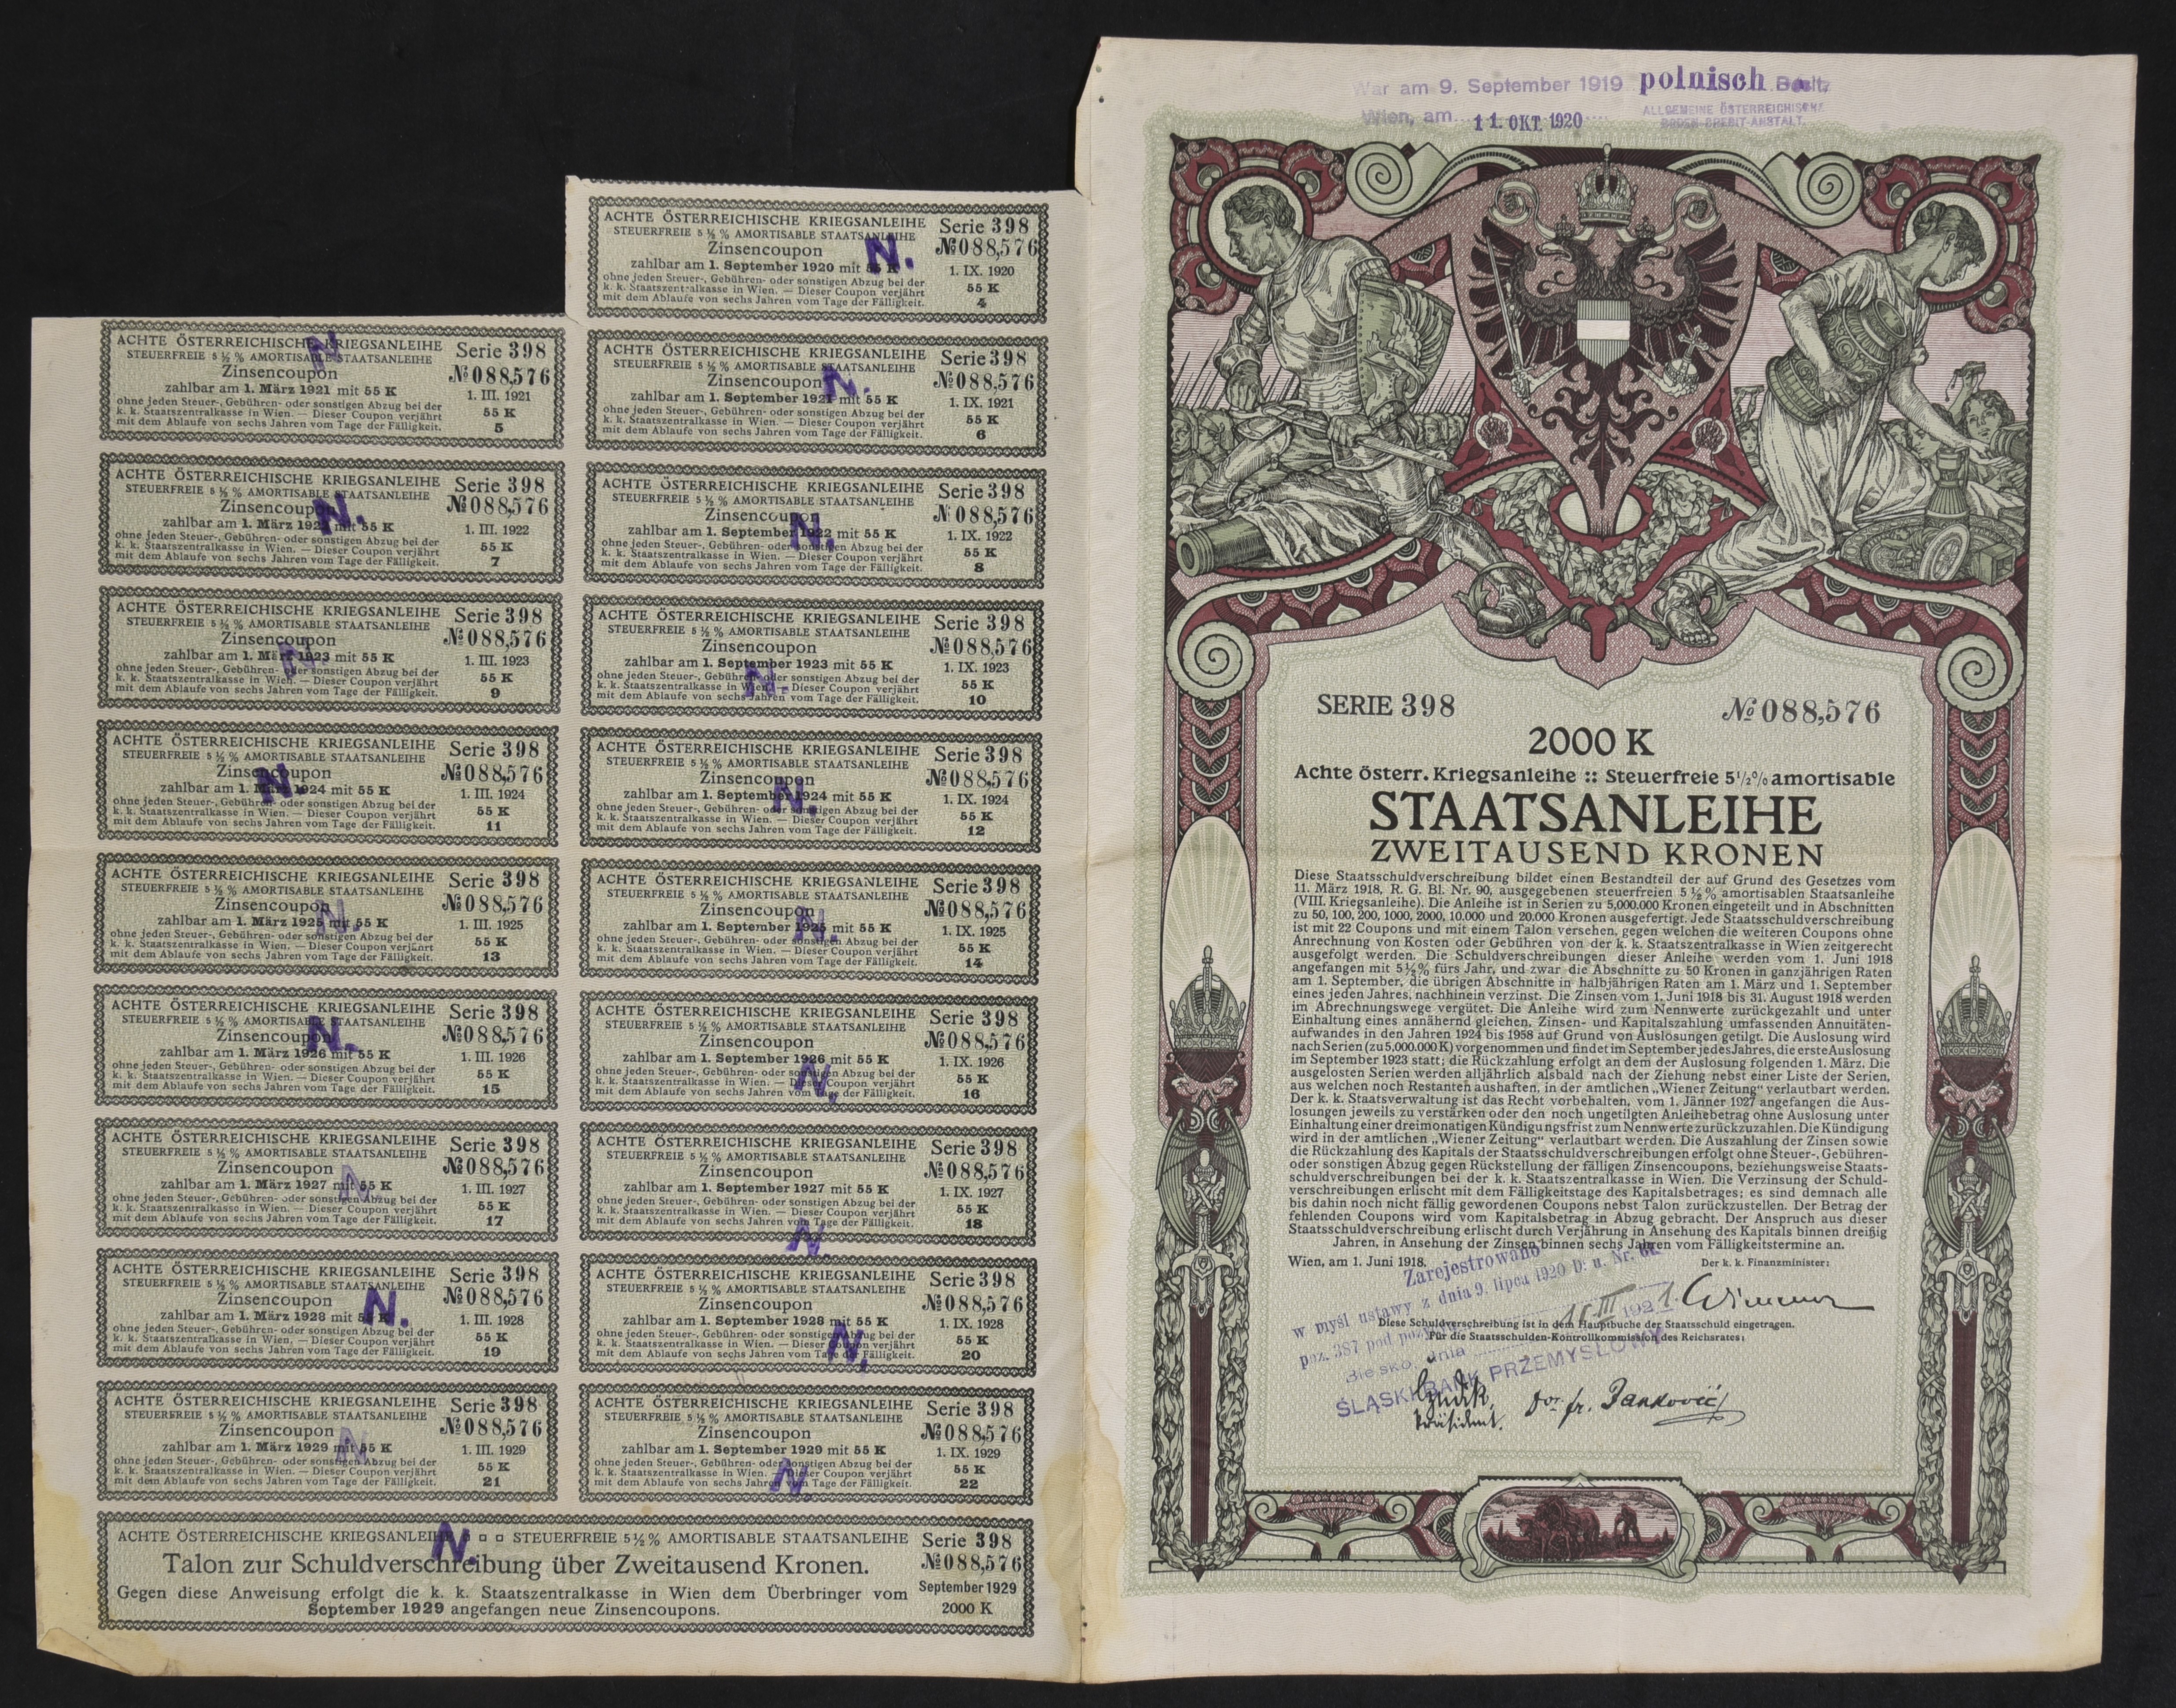 War am 9. September 1919 polnisch
Wien, am 11. OKT. 1920
ALLGEMEINE ÖSTERREICHISCHE
BODEN-CREDIT-ANSTALT.
SERIE 398 № 088,576
2000 K
Achte österr. Kriegsanleihe :: Steuerfreie 5½% amortisable
STAATSANLEIHE
ZWEITAUSEND KRONEN
Diese Staatsschuldverschreibung bildet einen Bestandteil der auf Grund des Gesetzes vom
11. März 1918, R. G. Bl. Nr. 90, ausgegebenen steuerfreien 5½% amortisablen Staatsanleihe
(VIII. Kriegsanleihe). Die Anleihe ist in Serien zu 5,000.000 Kronen eingeteilt und in Abschnitten
zu 50, 100, 200, 1000, 2000, 10.000 und 20.000 Kronen ausgefertigt. Jede Staatsschuldverschreibung
ist mit 22 Coupons und mit einem Talon versehen, gegen welchen die weiteren Coupons ohne
Anrechnung von Kosten oder Gebühren von der k. k. Staatszentralkasse in Wien zeitgerecht
ausgefolgt werden. Die Schuldverschreibungen dieser Anleihe werden vom 1. Juni 1918
angefangen mit 5½% fürs Jahr, und zwar die Abschnitte zu 50 Kronen in ganzjährigen Raten
am 1. September, die übrigen Abschnitte in halbjährigen Raten am 1. März und 1. September
eines jeden Jahres, nachhinein verzinst. Die Zinsen vom 1. Juni 1918 bis 31. August 1918 werden
im Abrechnungswege vergütet. Die Anleihe wird zum Nennwerte zurückgezahlt und unter
Einhaltung eines annähernd gleichen, Zinsen- und Kapitalszahlung umfassenden Annuitäten-
aufwandes in den Jahren 1924 bis 1958 auf Grund von Auslösungen getilgt. Die Auslosung wird
nach Serien (zu 5,000.000 K) vorgenommen und findet im September jedes Jahres, die erste Auslosung
im September 1923 statt; die Rückzahlung erfolgt an dem der Auslosung folgenden 1. März. Die
ausgelosten Serien werden alljährlich alsbald nach der Ziehung nebst einer Liste der Serien,
aus welchen noch Restanten aushaften, in der amtlichen „Wiener Zeitung“ verlautbart werden.
Der k. k. Staatsverwaltung ist das Recht vorbehalten, vom 1. Jänner 1927 angefangen die Aus-
losungen jeweils zu verstärken oder den noch ungetilgten Anleihebetrag ohne Auslosung unter
Einhaltung einer dreimonatigen Kündigungsfrist zum Nennwerte zurückzuzahlen. Die Kündigung
wird in der amtlichen „Wiener Zeitung“ verlautbart werden. Die Auszahlung der Zinsen sowie
die Rückzahlung des Kapitals der Staatsschuldverschreibungen erfolgt ohne Steuer-, Gebühren-
oder sonstigen Abzug gegen Rückstellung der fälligen Zinsencoupons, beziehungsweise Staats-
schuldverschreibungen bei der k. k. Staatszentralkasse in Wien. Die Verzinsung der Schuld-
verschreibungen erlischt mit dem Fälligkeitstage des Kapitalsbetrages; es sind demnach alle
bis dahin noch nicht fällig gewordenen Coupons nebst Talon zurückzustellen. Der Betrag der
fehlenden Coupons wird vom Kapitalsbetrag in Abzug gebracht. Der Anspruch aus dieser
Staatsschuldverschreibung erlischt durch Verjährung in Ansehung des Kapitals binnen dreißig
Jahren, in Ansehung der Zinsen binnen sechs Jahren vom Fälligkeitstermine an.
Wien, am 1. Juni 1918. Der k. k. Finanzminister:
Wimmer
Zarejestrowano
w myśl ustawy z dnia 9. lipca 1920 D. u. Nr.
poz. 387 pod poz.
Bielsko, dnia 18 III 1921.
ŚLĄSKI BANK PRZEMYSŁOWY
Diese Schuldverschreibung ist in dem Hauptbuche der Staatsschuld eingetragen.
Für die Staatsschulden-Kontrollkommission des Reichsrates:
Präsident. Dor. fr. Janković
ACHTE ÖSTERREICHISCHE KRIEGSANLEIHE Serie 398
STEUERFREIE 5½% AMORTISABLE STAATSANLEIHE № 088,576
Zinsencoupon N.
zahlbar am 1. September 1920 mit 55 K 1. IX. 1920
ohne jeden Steuer-, Gebühren- oder sonstigen Abzug bei der
k. k. Staatszentralkasse in Wien. — Dieser Coupon verjährt 55 K
mit dem Ablaufe von sechs Jahren vom Tage der Fälligkeit. 4
ACHTE ÖSTERREICHISCHE KRIEGSANLEIHE Serie 398
STEUERFREIE 5½% AMORTISABLE STAATSANLEIHE № 088,576
Zinsencoupon N.
zahlbar am 1. März 1921 mit 55 K 1. III. 1921
ohne jeden Steuer-, Gebühren- oder sonstigen Abzug bei der
k. k. Staatszentralkasse in Wien. — Dieser Coupon verjährt 55 K
mit dem Ablaufe von sechs Jahren vom Tage der Fälligkeit. 5
ACHTE ÖSTERREICHISCHE KRIEGSANLEIHE Serie 398
STEUERFREIE 5½% AMORTISABLE STAATSANLEIHE № 088,576
Zinsencoupon N.
zahlbar am 1. September 1921 mit 55 K 1. IX. 1921
ohne jeden Steuer-, Gebühren- oder sonstigen Abzug bei der
k. k. Staatszentralkasse in Wien. — Dieser Coupon verjährt 55 K
mit dem Ablaufe von sechs Jahren vom Tage der Fälligkeit. 6
ACHTE ÖSTERREICHISCHE KRIEGSANLEIHE Serie 398
STEUERFREIE 5½% AMORTISABLE STAATSANLEIHE № 088,576
Zinsencoupon N.
zahlbar am 1. März 1922 mit 55 K 1. III. 1922
ohne jeden Steuer-, Gebühren- oder sonstigen Abzug bei der
k. k. Staatszentralkasse in Wien. — Dieser Coupon verjährt 55 K
mit dem Ablaufe von sechs Jahren vom Tage der Fälligkeit. 7
ACHTE ÖSTERREICHISCHE KRIEGSANLEIHE Serie 398
STEUERFREIE 5½% AMORTISABLE STAATSANLEIHE № 088,576
Zinsencoupon N.
zahlbar am 1. September 1922 mit 55 K 1. IX. 1922
ohne jeden Steuer-, Gebühren- oder sonstigen Abzug bei der
k. k. Staatszentralkasse in Wien. — Dieser Coupon verjährt 55 K
mit dem Ablaufe von sechs Jahren vom Tage der Fälligkeit. 8
ACHTE ÖSTERREICHISCHE KRIEGSANLEIHE Serie 398
STEUERFREIE 5½% AMORTISABLE STAATSANLEIHE № 088,576
Zinsencoupon N.
zahlbar am 1. März 1923 mit 55 K 1. III. 1923
ohne jeden Steuer-, Gebühren- oder sonstigen Abzug bei der
k. k. Staatszentralkasse in Wien. — Dieser Coupon verjährt 55 K
mit dem Ablaufe von sechs Jahren vom Tage der Fälligkeit. 9
ACHTE ÖSTERREICHISCHE KRIEGSANLEIHE Serie 398
STEUERFREIE 5½% AMORTISABLE STAATSANLEIHE № 088,576
Zinsencoupon N.
zahlbar am 1. September 1923 mit 55 K 1. IX. 1923
ohne jeden Steuer-, Gebühren- oder sonstigen Abzug bei der
k. k. Staatszentralkasse in Wien. — Dieser Coupon verjährt 55 K
mit dem Ablaufe von sechs Jahren vom Tage der Fälligkeit. 10
ACHTE ÖSTERREICHISCHE KRIEGSANLEIHE Serie 398
STEUERFREIE 5½% AMORTISABLE STAATSANLEIHE № 088,576
Zinsencoupon N.
zahlbar am 1. März 1924 mit 55 K 1. III. 1924
ohne jeden Steuer-, Gebühren- oder sonstigen Abzug bei der
k. k. Staatszentralkasse in Wien. — Dieser Coupon verjährt 55 K
mit dem Ablaufe von sechs Jahren vom Tage der Fälligkeit. 11
ACHTE ÖSTERREICHISCHE KRIEGSANLEIHE Serie 398
STEUERFREIE 5½% AMORTISABLE STAATSANLEIHE № 088,576
Zinsencoupon N.
zahlbar am 1. September 1924 mit 55 K 1. IX. 1924
ohne jeden Steuer-, Gebühren- oder sonstigen Abzug bei der
k. k. Staatszentralkasse in Wien. — Dieser Coupon verjährt 55 K
mit dem Ablaufe von sechs Jahren vom Tage der Fälligkeit. 12
ACHTE ÖSTERREICHISCHE KRIEGSANLEIHE Serie 398
STEUERFREIE 5½% AMORTISABLE STAATSANLEIHE № 088,576
Zinsencoupon N.
zahlbar am 1. März 1925 mit 55 K 1. III. 1925
ohne jeden Steuer-, Gebühren- oder sonstigen Abzug bei der
k. k. Staatszentralkasse in Wien. — Dieser Coupon verjährt 55 K
mit dem Ablaufe von sechs Jahren vom Tage der Fälligkeit. 13
ACHTE ÖSTERREICHISCHE KRIEGSANLEIHE Serie 398
STEUERFREIE 5½% AMORTISABLE STAATSANLEIHE № 088,576
Zinsencoupon N.
zahlbar am 1. September 1925 mit 55 K 1. IX. 1925
ohne jeden Steuer-, Gebühren- oder sonstigen Abzug bei der
k. k. Staatszentralkasse in Wien. — Dieser Coupon verjährt 55 K
mit dem Ablaufe von sechs Jahren vom Tage der Fälligkeit. 14
ACHTE ÖSTERREICHISCHE KRIEGSANLEIHE Serie 398
STEUERFREIE 5½% AMORTISABLE STAATSANLEIHE № 088,576
Zinsencoupon N.
zahlbar am 1. März 1926 mit 55 K 1. III. 1926
ohne jeden Steuer-, Gebühren- oder sonstigen Abzug bei der
k. k. Staatszentralkasse in Wien. — Dieser Coupon verjährt 55 K
mit dem Ablaufe von sechs Jahren vom Tage der Fälligkeit. 15
ACHTE ÖSTERREICHISCHE KRIEGSANLEIHE Serie 398
STEUERFREIE 5½% AMORTISABLE STAATSANLEIHE № 088,576
Zinsencoupon N.
zahlbar am 1. September 1926 mit 55 K 1. IX. 1926
ohne jeden Steuer-, Gebühren- oder sonstigen Abzug bei der
k. k. Staatszentralkasse in Wien. — Dieser Coupon verjährt 55 K
mit dem Ablaufe von sechs Jahren vom Tage der Fälligkeit. 16
ACHTE ÖSTERREICHISCHE KRIEGSANLEIHE Serie 398
STEUERFREIE 5½% AMORTISABLE STAATSANLEIHE № 088,576
Zinsencoupon N.
zahlbar am 1. März 1927 mit 55 K 1. III. 1927
ohne jeden Steuer-, Gebühren- oder sonstigen Abzug bei der
k. k. Staatszentralkasse in Wien. — Dieser Coupon verjährt 55 K
mit dem Ablaufe von sechs Jahren vom Tage der Fälligkeit. 17
ACHTE ÖSTERREICHISCHE KRIEGSANLEIHE Serie 398
STEUERFREIE 5½% AMORTISABLE STAATSANLEIHE № 088,576
Zinsencoupon N.
zahlbar am 1. September 1927 mit 55 K 1. IX. 1927
ohne jeden Steuer-, Gebühren- oder sonstigen Abzug bei der
k. k. Staatszentralkasse in Wien. — Dieser Coupon verjährt 55 K
mit dem Ablaufe von sechs Jahren vom Tage der Fälligkeit. 18
ACHTE ÖSTERREICHISCHE KRIEGSANLEIHE Serie 398
STEUERFREIE 5½% AMORTISABLE STAATSANLEIHE № 088,576
Zinsencoupon N.
zahlbar am 1. März 1928 mit 55 K 1. III. 1928
ohne jeden Steuer-, Gebühren- oder sonstigen Abzug bei der
k. k. Staatszentralkasse in Wien. — Dieser Coupon verjährt 55 K
mit dem Ablaufe von sechs Jahren vom Tage der Fälligkeit. 19
ACHTE ÖSTERREICHISCHE KRIEGSANLEIHE Serie 398
STEUERFREIE 5½% AMORTISABLE STAATSANLEIHE № 088,576
Zinsencoupon N.
zahlbar am 1. September 1928 mit 55 K 1. IX. 1928
ohne jeden Steuer-, Gebühren- oder sonstigen Abzug bei der
k. k. Staatszentralkasse in Wien. — Dieser Coupon verjährt 55 K
mit dem Ablaufe von sechs Jahren vom Tage der Fälligkeit. 20
ACHTE ÖSTERREICHISCHE KRIEGSANLEIHE Serie 398
STEUERFREIE 5½% AMORTISABLE STAATSANLEIHE № 088,576
Zinsencoupon N.
zahlbar am 1. März 1929 mit 55 K 1. III. 1929
ohne jeden Steuer-, Gebühren- oder sonstigen Abzug bei der
k. k. Staatszentralkasse in Wien. — Dieser Coupon verjährt 55 K
mit dem Ablaufe von sechs Jahren vom Tage der Fälligkeit. 21
ACHTE ÖSTERREICHISCHE KRIEGSANLEIHE Serie 398
STEUERFREIE 5½% AMORTISABLE STAATSANLEIHE № 088,576
Zinsencoupon N.
zahlbar am 1. September 1929 mit 55 K 1. IX. 1929
ohne jeden Steuer-, Gebühren- oder sonstigen Abzug bei der
k. k. Staatszentralkasse in Wien. — Dieser Coupon verjährt 55 K
mit dem Ablaufe von sechs Jahren vom Tage der Fälligkeit. 22
ACHTE ÖSTERREICHISCHE KRIEGSANLEIHE N. STEUERFREIE 5½% AMORTISABLE STAATSANLEIHE Serie 398
Talon zur Schuldverschreibung über Zweitausend Kronen. № 088,576
Gegen diese Anweisung erfolgt die k. k. Staatszentralkasse in Wien dem Überbringer vom September 1929
September 1929 angefangen neue Zinsencoupons. 2000 K